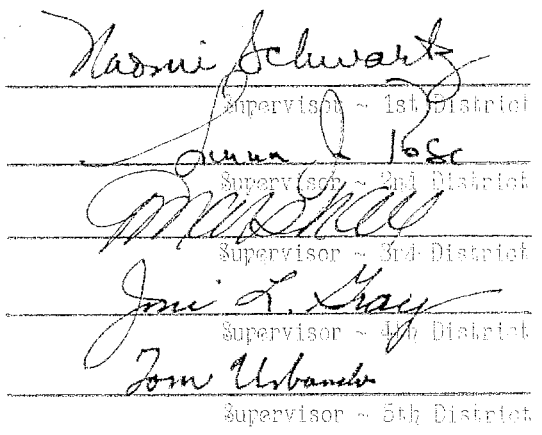 Naomi Schwartz
Supervisor ~ 1st District
Rose
Supervisor ~ 2nd District
Marshall
Supervisor ~ 3rd District
Joni L. Gray
Supervisor ~ 4th District
Tom Urbanske
Supervisor ~ 5th District